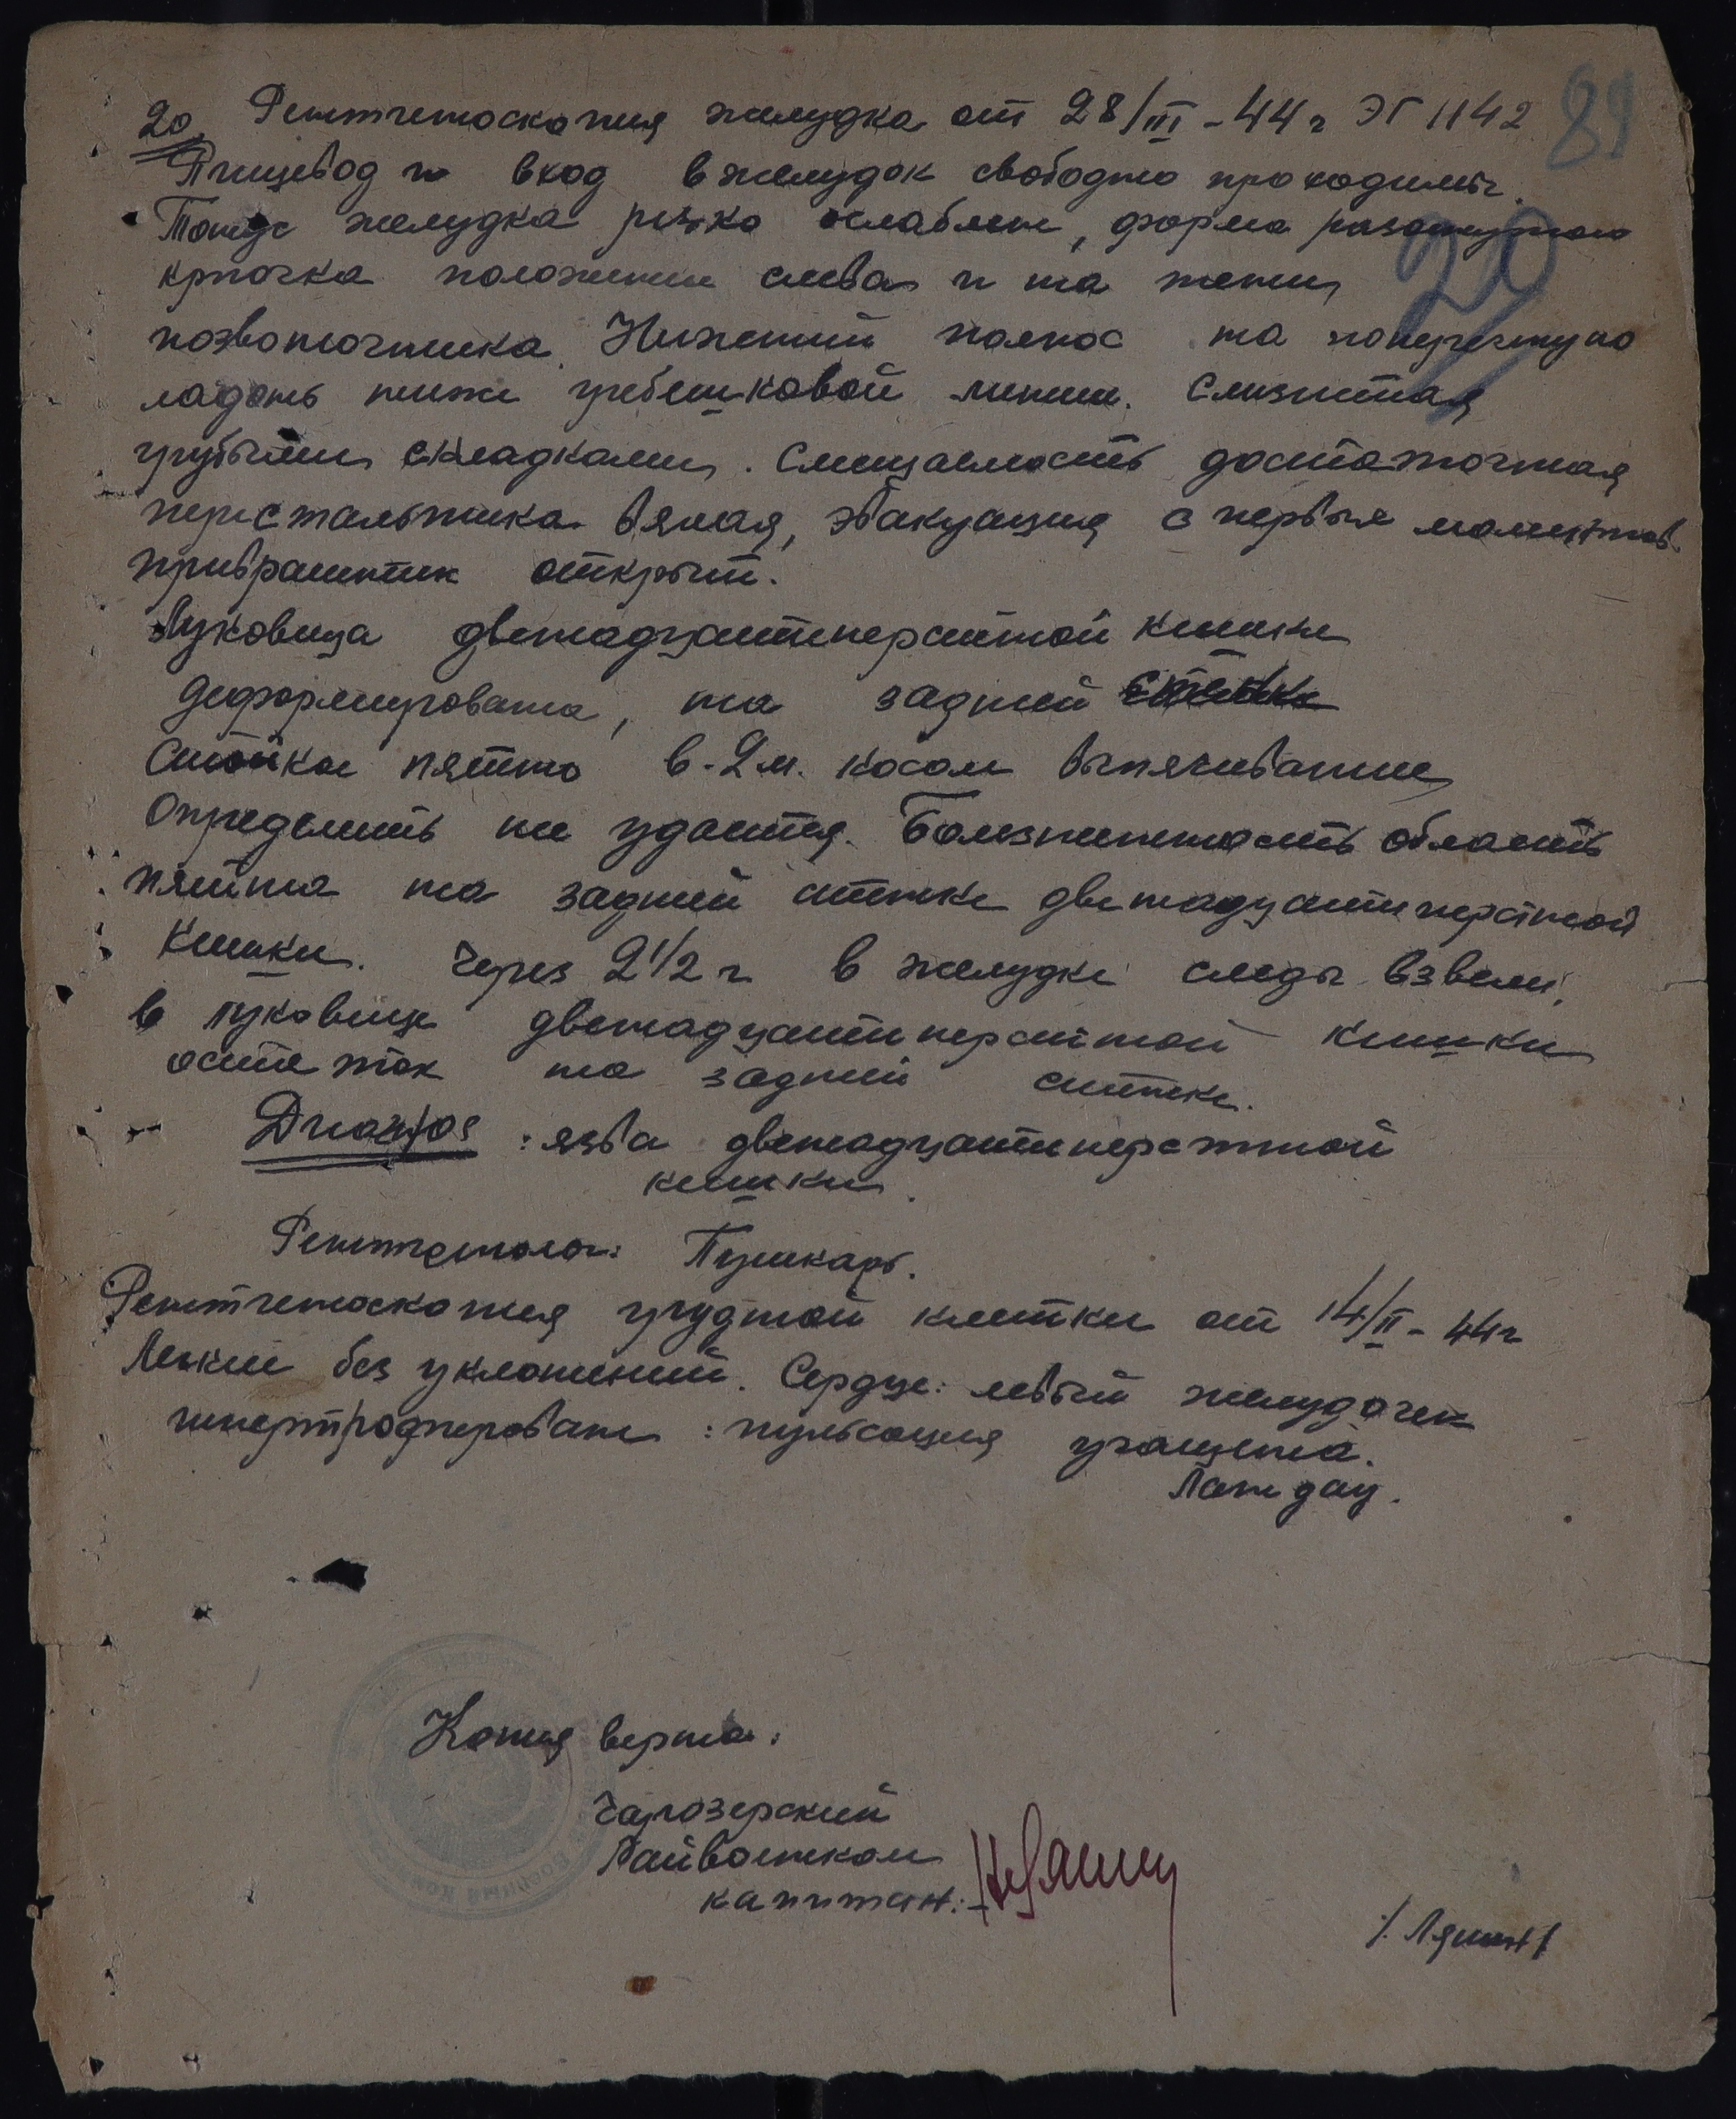 20. Рентгеноскопия желудка от 28/III-44г ЭГ 1142
89
Пищевод и вход в желудок свободно проходимы.
Тонус желудка резко ослаблен, форма разогнутого
20
крючка положение слева и на тени
позвоночника. Нижний полюс на поперечную
ладонь ниже гребешковой линии. Слизистая
грубыми складками. Смещаемость достаточная
перистальтика вялая, эвакуация с первых моментов.
привратник открыт.
Луковица двенадцатиперстной кишки
деформирована, на задней стенке
Стойкое пятно в 2м. косом выпячивание
Определить не удается. Болезненность область
пятна на задней стенке двенадцатиперстной
кишки. Через 2 1/2 г в желудке следы взвеси,
в луковице двенадцатиперстной кишки
остаток на задней стенке.
Диагноз: язва двенадцатиперстной
кишки.
Рентгенолог: Пушкарь.
Рентгеноскопия грудной клетки от 14/II-44г
Легкие без уклонений. Сердце: левый желудочек
гипертрофирован: пульсация учащена.
Ландау.
Копия верна:
Чарозерский
Райвоенком
капитан:
/. Ляшин/